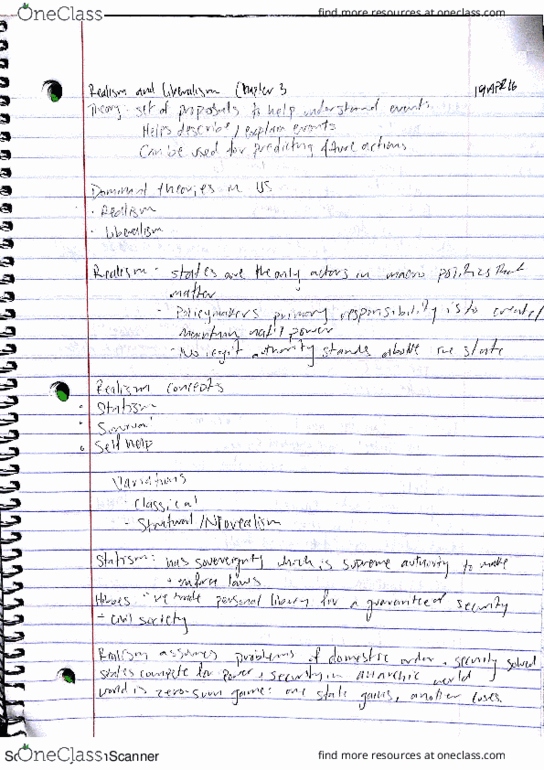 OneClass
find more resources at oneclass.com
Realism and Liberalism Chapter 3
19APR16
Theory: set of proposals to help understand events.
Helps describe / explain events
Can be used for predicting future actions
Dominant theories in US
· Realism
· Liberalism
Realism - states are the only actors in macro politics that
matter
- Policymakers primary responsibility is to create/
maintain nat'l power
- No legit authority stands above the state
Realism concepts
· Statism
· Survival
· Self help
Variations
- Classical
- Structural / Neorealism
Statism: has sovereignty which is supreme authority to make
+ enforce laws
"we trade personal liberty for a guarantee of security
- civil society
Realism assumes problems of domestic order + security solved
states compete for power + security in anarchic world
world is zero-sum game: one state gains, another loses.
OneClass
Scanner
find more resources at oneclass.com